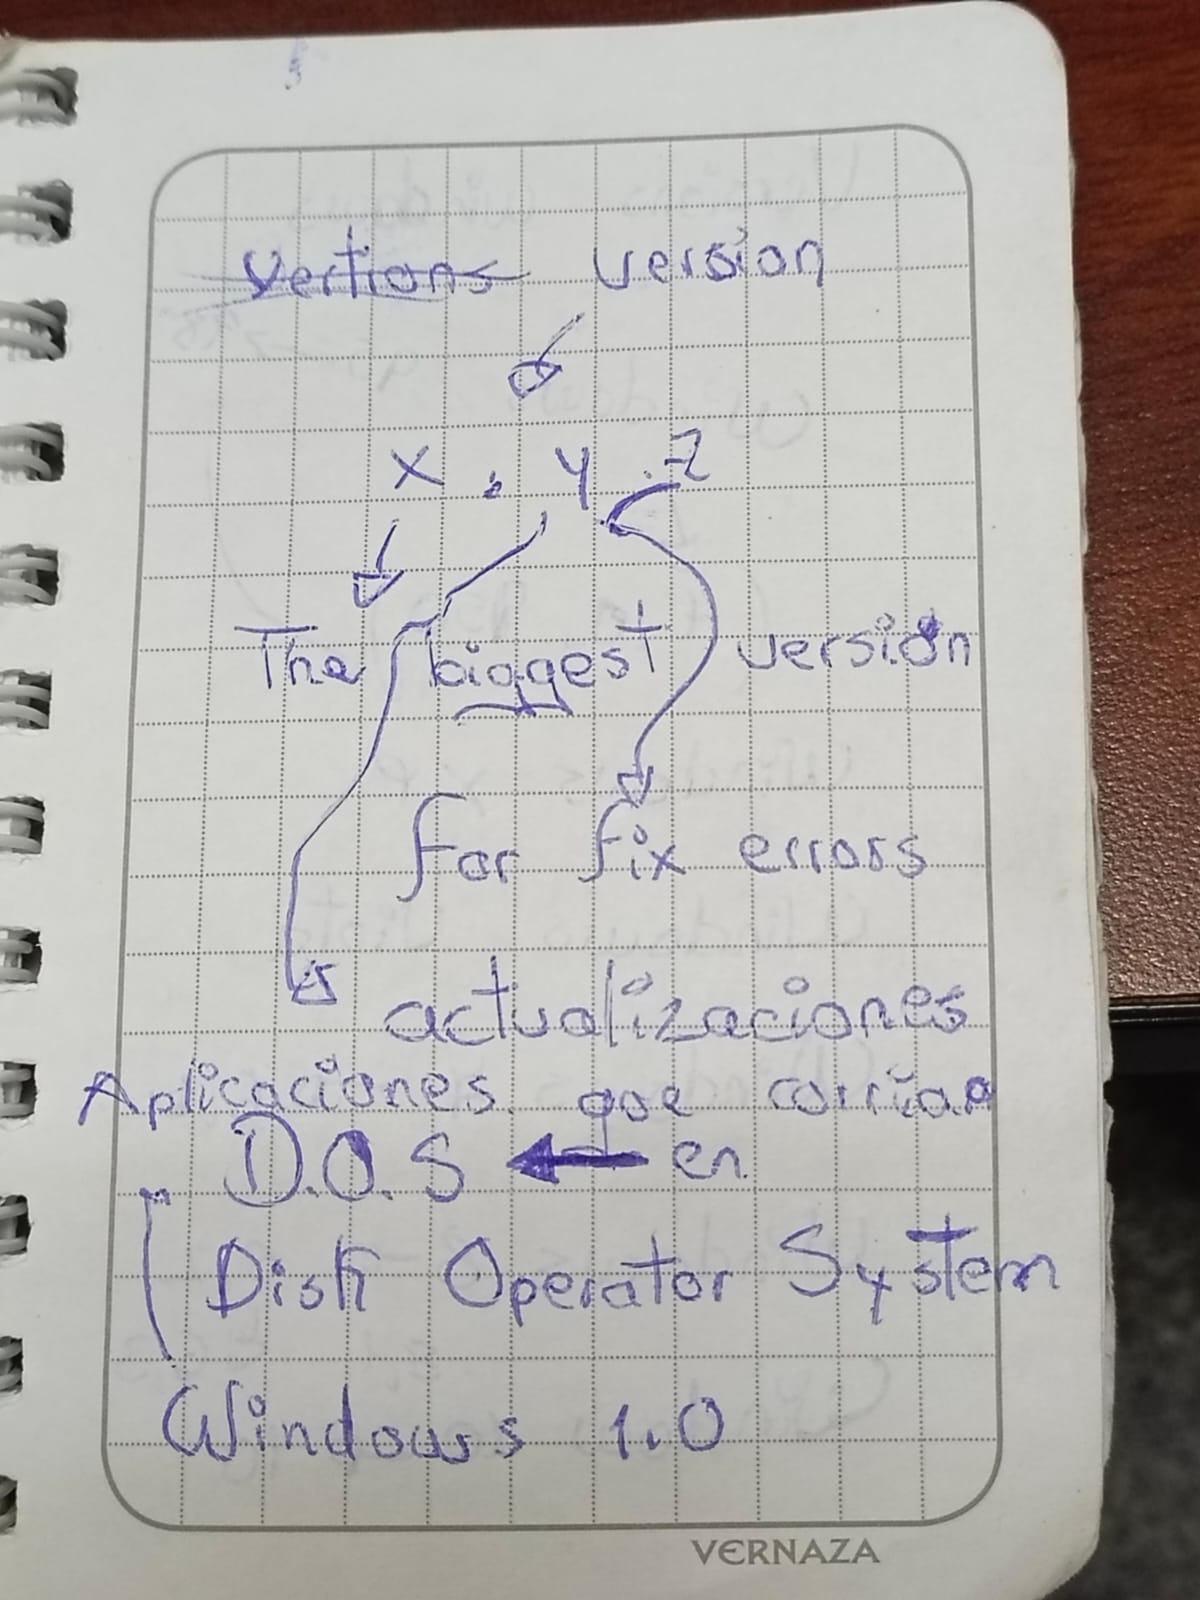 vertions version
x . y .z
The biggest version
for fix errors
actualizaciones
Aplicaciones que corrian
D.O.S en
Disk Operator System
Windows 1.0
VERNAZA